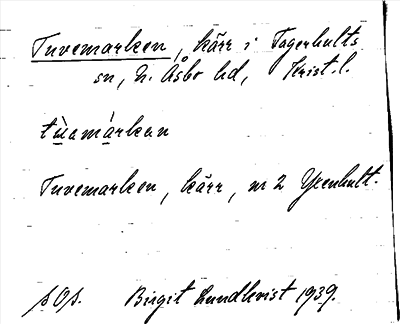 Tuvemarken, kärr i Tågerhults
sn, N. Åsbo hd, Krist. l.
tùamárkan
Tuvemarken, kärr, nr 2 Yxenhult.
sOs. Birgit Lundkvist 1939.